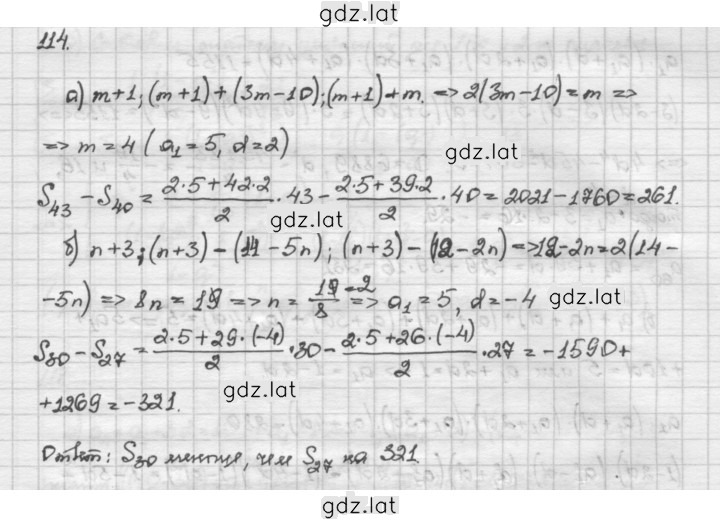 gdz.lat
114.
а) m+1; (m+1)+(3m-10); (m+1)+m. => 2(3m-10)=m =>
=> m=4 (a₁=5, d=2)
gdz.lat
S₄₃-S₄₀= (2·5+42·2)/2 ·43- (2·5+39·2)/2 ·40=2021-1760=261.
gdz.lat
б) n+3; (n+3)-(11-5n); (n+3)-(12-2n)=>12-2n=2(14-
-5n) => 8n=19 => n= 19/8 =2 => a₁=5, d=-4
gdz.lat
S₃₀-S₂₇= (2·5+29·(-4))/2 ·30- (2·5+26·(-4))/2 ·27=-1590+
gdz.lat
+1269=-321.
Ответ: S₃₀ меньше, чем S₂₇ на 321.
gdz.lat